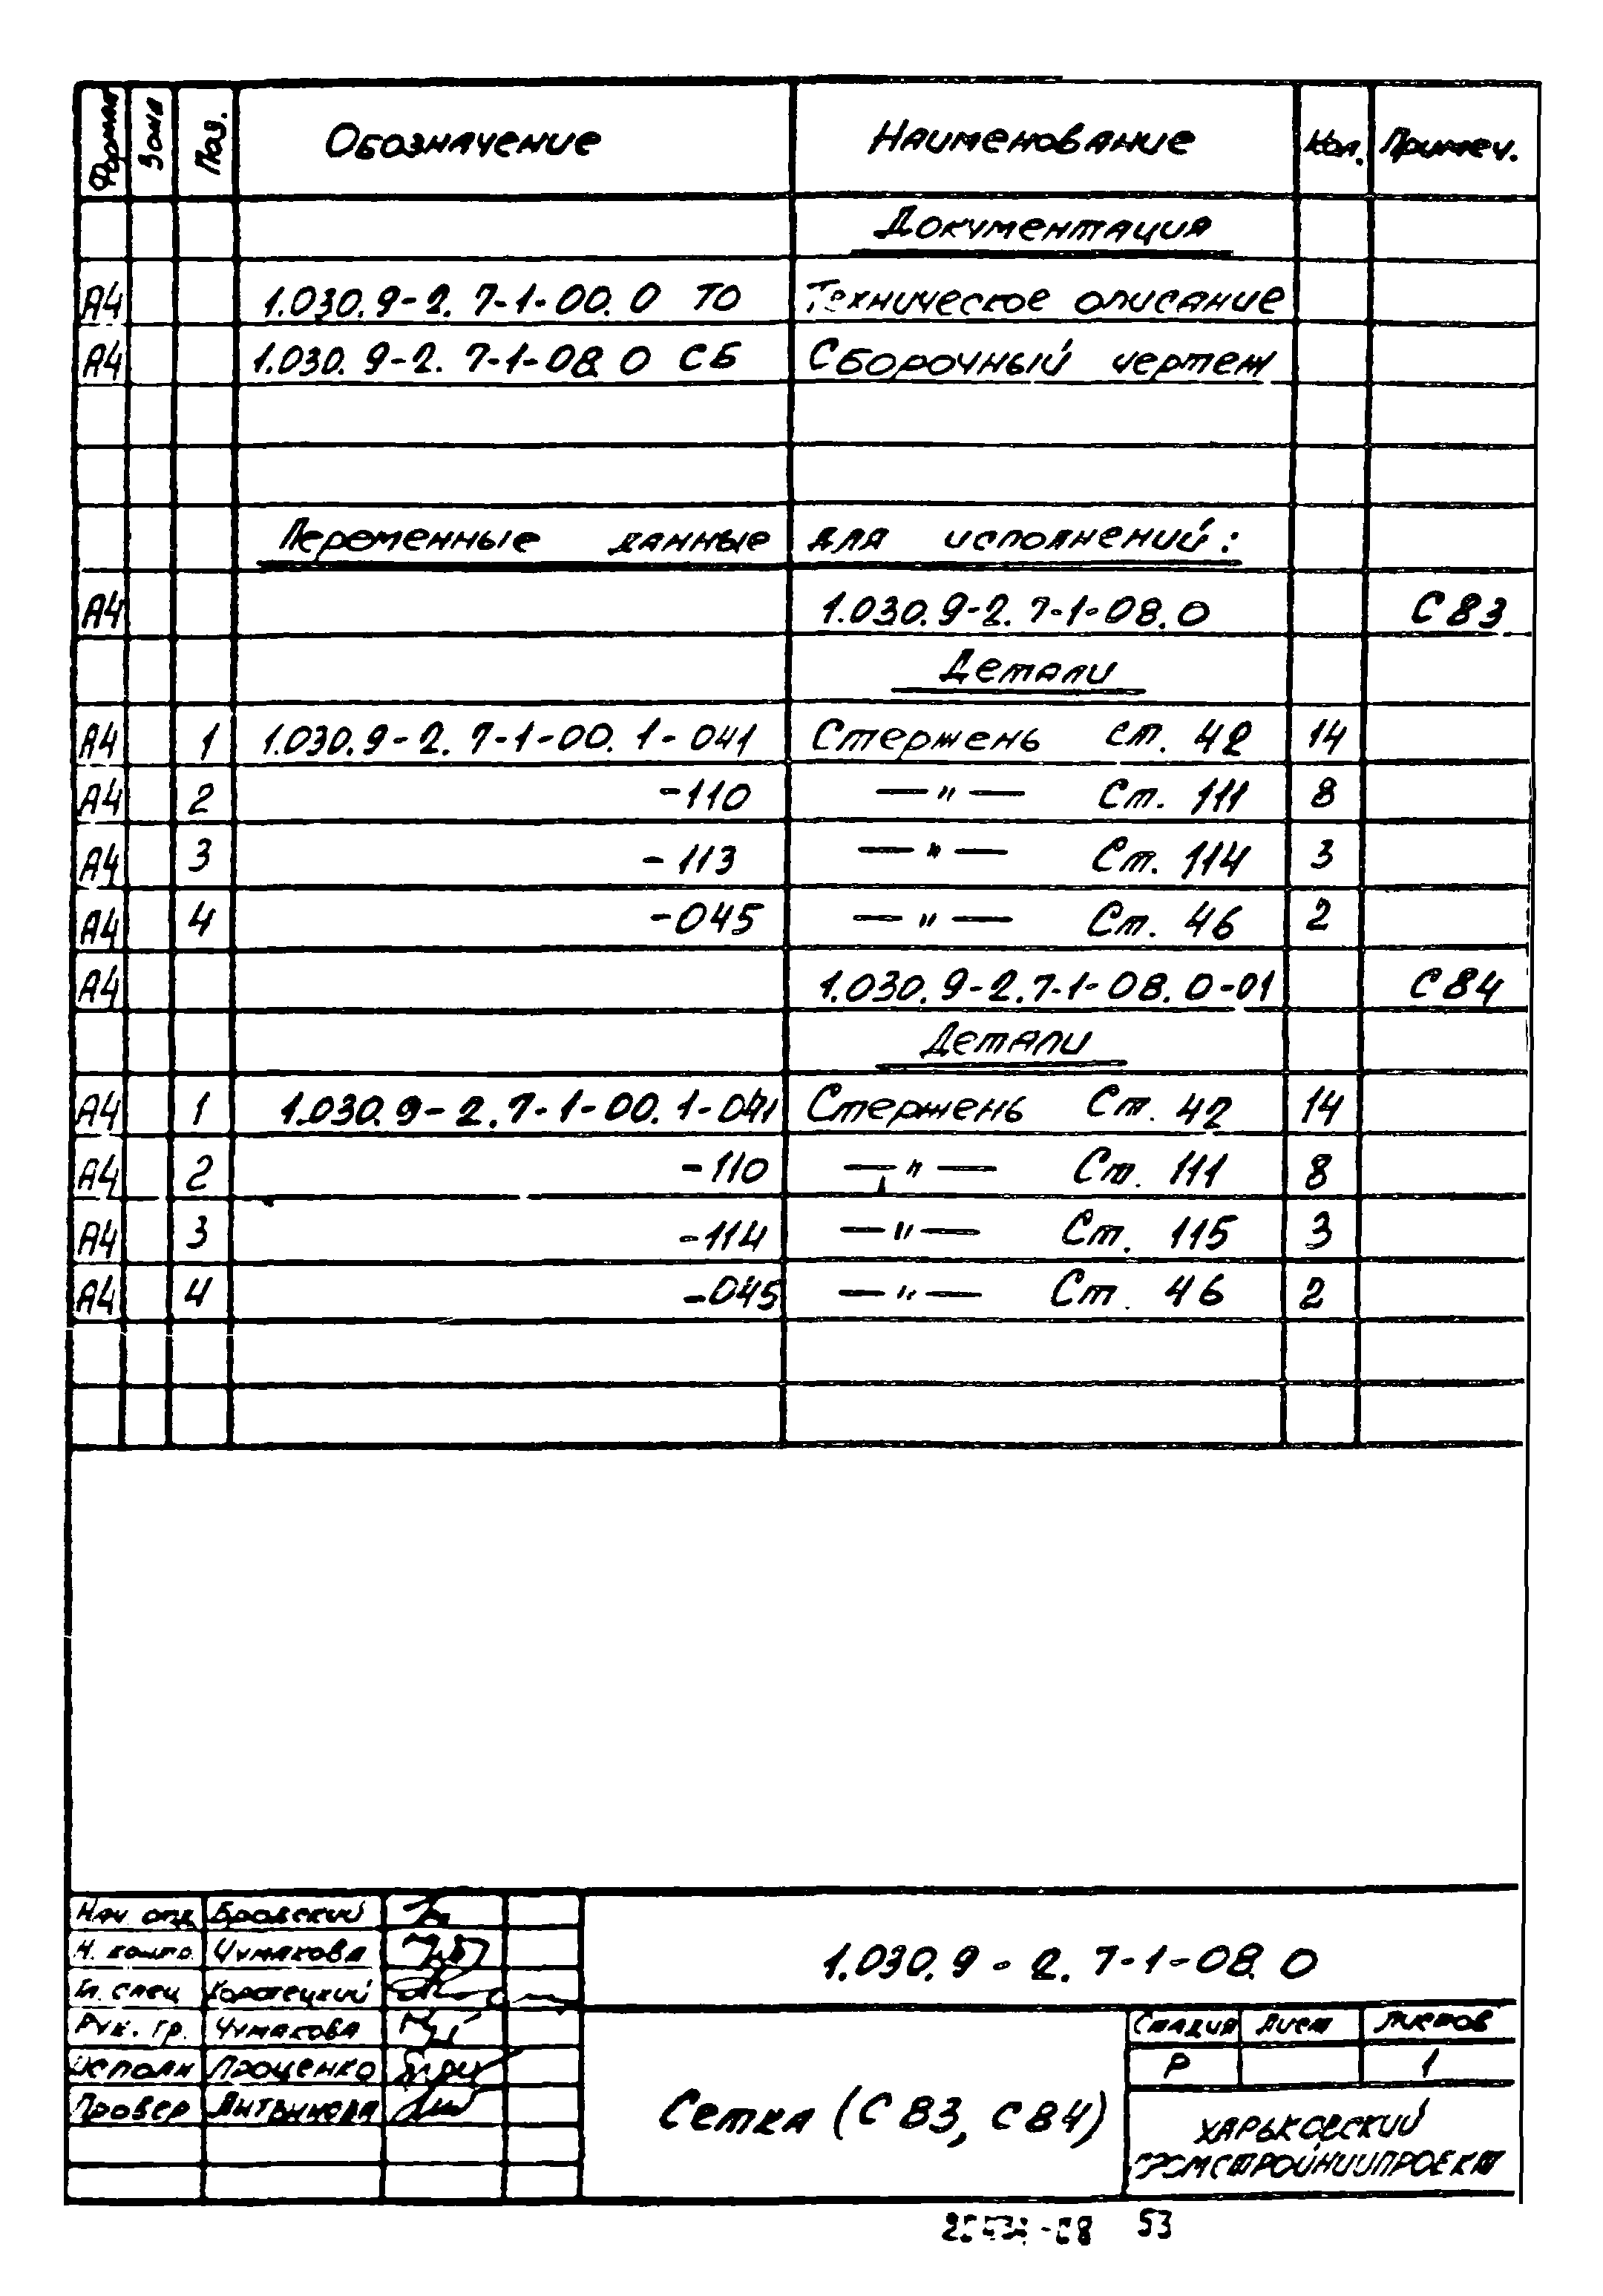 Формат Зона Поз. Обозначение Наименование Кол. Примеч.
Документация
А4 1.030.9-2.7-1-00.0 ТО Техническое описание
А4 1.030.9-2.7-1-08.0 СБ Сборочный чертеж
Переменные данные для исполнений:
А4 1.030.9-2.7-1-08.0 С83
Детали
А4 1 1.030.9-2.7-1-00.1-041 Стержень ст. 42 14
А4 2 -110 —"— Ст. 111 8
А4 3 -113 —"— Ст. 114 3
А4 4 -045 —"— Ст. 46 2
А4 1.030.9-2.7-1-08.0-01 С84
Детали
А4 1 1.030.9-2.7-1-00.1-041 Стержень Ст. 42 14
А4 2 -110 —"— Ст. 111 8
А4 3 -114 —"— Ст. 115 3
А4 4 -045 —"— Ст. 46 2
Нач. отд. Бровский
Н. контр. Чумакова
Гл. спец. Коротецкий
Рук. гр. Чумакова
Исполн Проценко
Провер Литвинова
1.030.9-2.7-1-08.0
Сетка (С83, С84)
Стадия Лист Листов
Р 1
ХАРЬКОВСКИЙ
ПРОМСТРОЙНИИПРОЕКТ
53